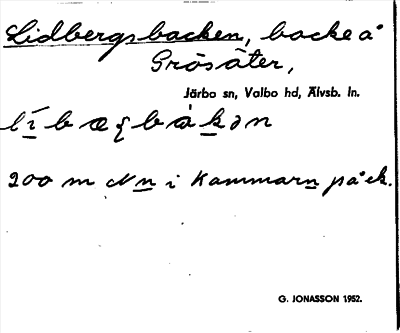 Lidbergsbacken, backe å
Grösäter,
Järbo sn, Valbo hd, Älvsb. ln.
200 m N n i Kammarn på ek.
G. JONASSON 1952.